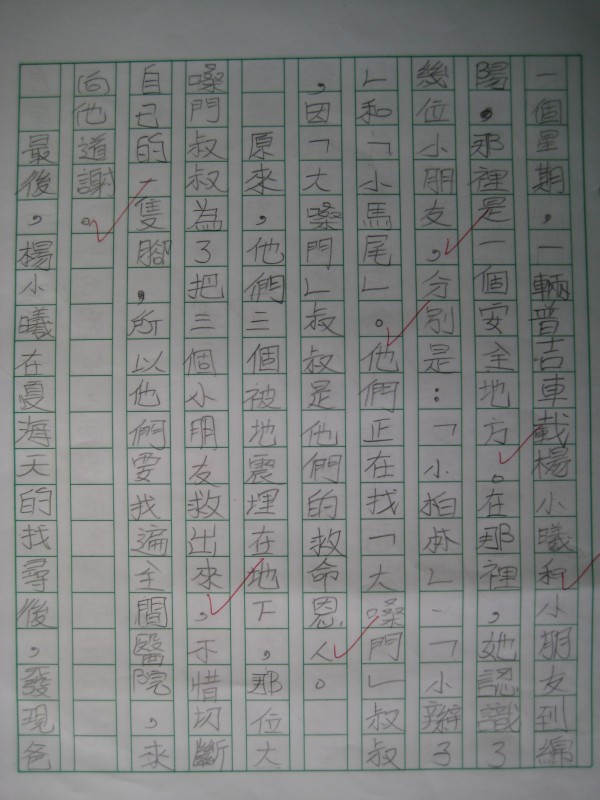 一個星期，一輛普吉車載楊小曦和小朋友到綿
陽，那裡是一個安全地方。在那裡，她認識了
幾位小朋友，分別是：「小拍林」、「小辮子
」和「小馬尾」。他們正在找「大嗓門」叔叔
，因「大嗓門」叔叔是他們的救命恩人。
原來，他們三個被地震埋在地下，那位大
嗓門叔叔為了把三個小朋友救出來，不惜切斷
自己的一隻腳，所以他們要找遍全間醫院，來
向他道謝。
最後，楊小曦在夏海天的找尋後，發現爸